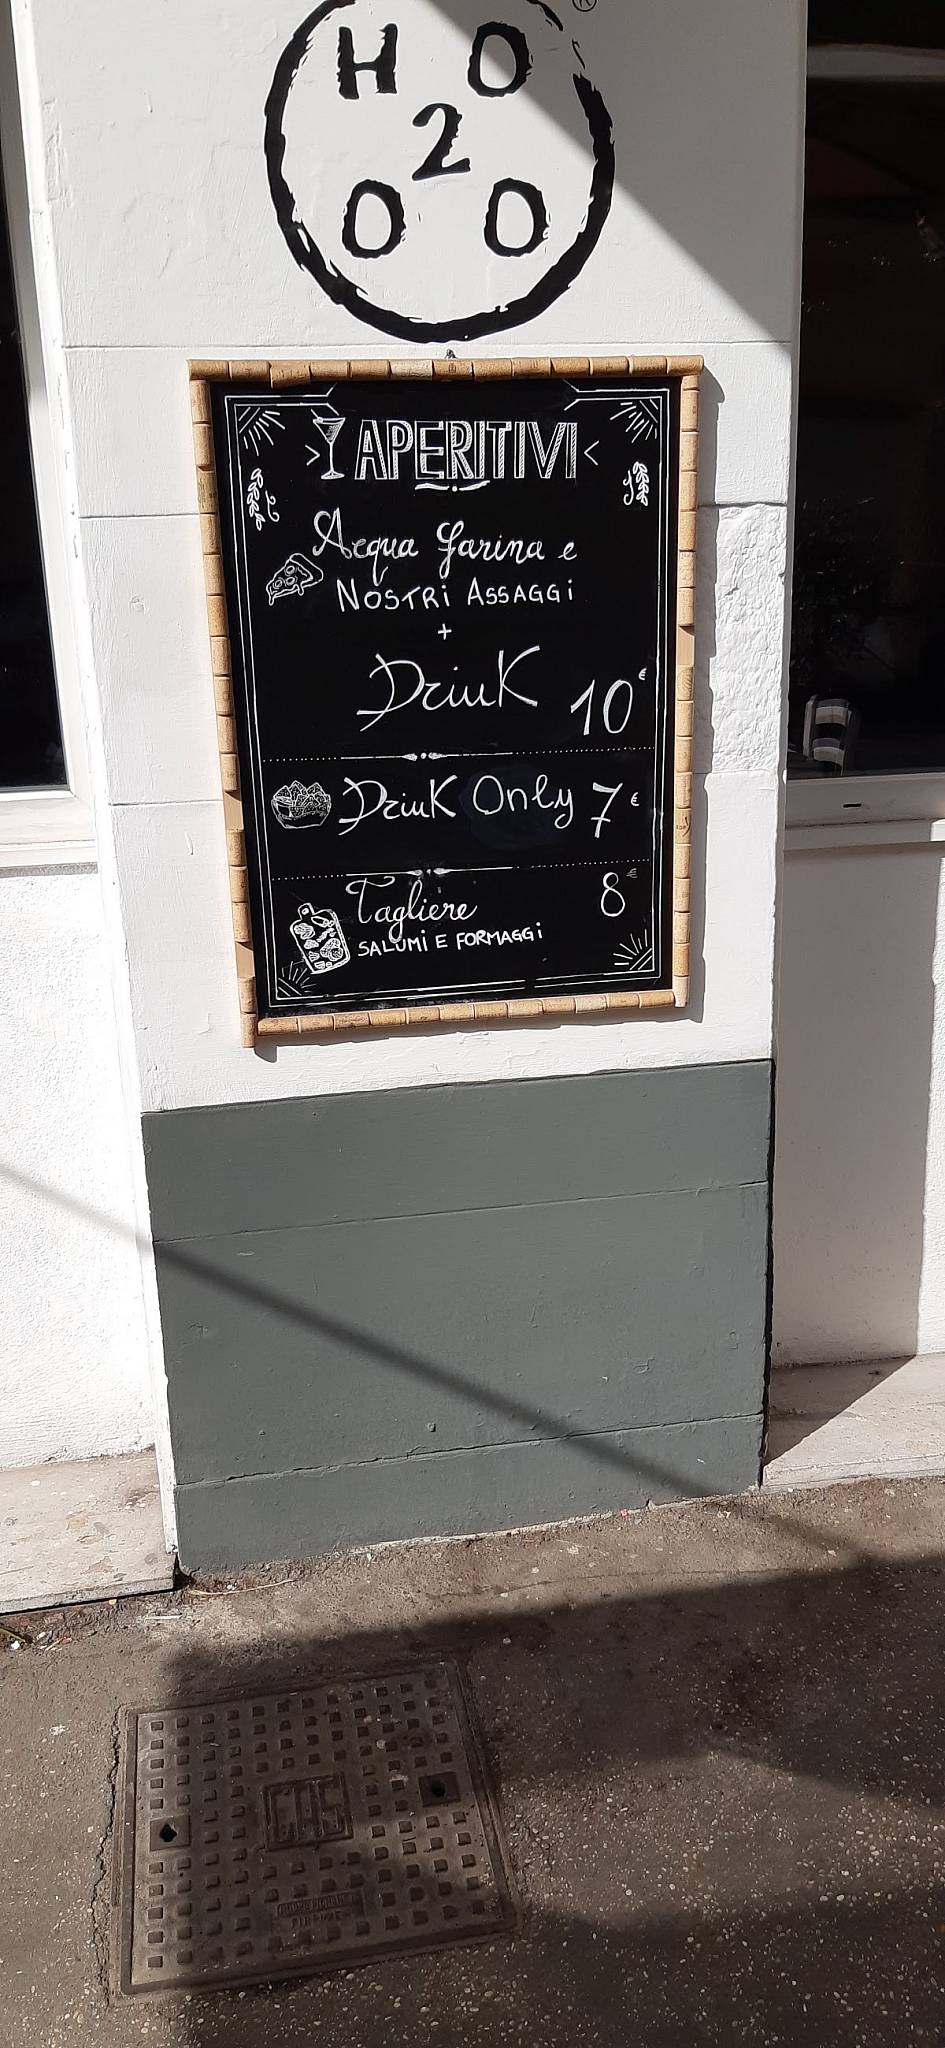 ®
H O
2
O O
APERITIVI
Acqua farina e
NOSTRI ASSAGGI
+
Drink 10€
Drink Only 7€
Tagliere 8€
SALUMI E FORMAGGI